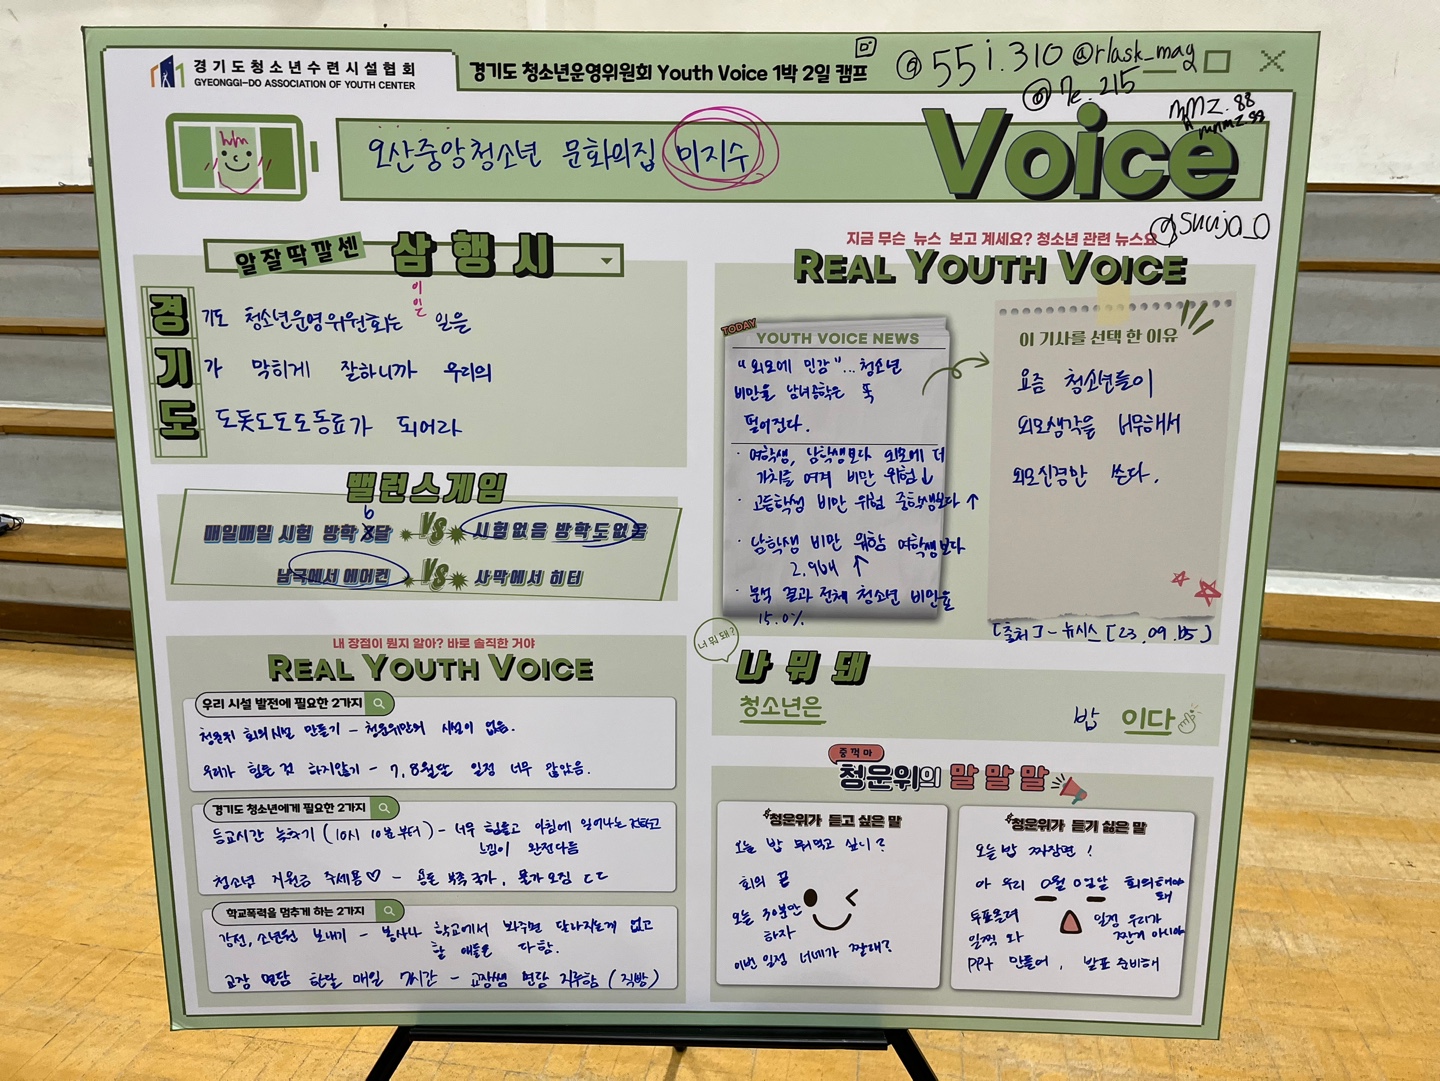 경기도청소년수련시설협회
GYEONGGI-DO ASSOCIATION OF YOUTH CENTER
경기도 청소년운영위원회 Youth Voice 1박 2일 캠프
@ 55i.310 @rlask_mag
@ 7e.215
mmz.88
오산중앙청소년 문화의집 미지수
Voice
@suuja_0
알잘딱깔센 삼행시
경 기도 청소년운영위원회는 일을
이일
기 가 막히게 잘하니까 우리의
도 도돗도도도동료가 되어라
밸런스게임
매일매일 시험 방학 6달 VS 시험없음 방학도없음
남극에서 에어컨 VS 사막에서 히터
내 장점이 뭔지 알아? 바로 솔직한 거야
REAL YOUTH VOICE
우리 시설 발전에 필요한 2가지
청운위 회의시설 만들기 - 청운위만의 시설이 없음.
우리가 힘든 것 하지않기 - 7,8월달 일정 너무 많았음.
경기도 청소년에게 필요한 2가지
등교시간 늦추기 (10시 10분부터) - 너무 힘들고 아침에 일어나는
느낌이 완전다름
청소년 지원금 주세용♡ - 용돈 부족 국가, 물가 오짐 ㄷㄷ
학교폭력을 멈추게 하는 2가지
강전, 소년원 보내기 - 봉사나 학교에서 봐주면 달라지는게 없고
할 애들은 다 함.
교장 면담 한달 매일 7시간 - 교장쌤 면담 지루함 (직방)
지금 무슨 뉴스 보고 계세요? 청소년 관련 뉴스요
REAL YOUTH VOICE
TODAY
YOUTH VOICE NEWS
"외모에 민감"...청소년
비만율 남녀중학은 뚝
떨어진다.
· 여학생, 남학생보다 외모에 더
가치를 여겨 비만 위험↓
· 고등학생 비만 위험 중학생보다 ↑
· 남학생 비만 위험 여학생보다
2.9배 ↑
· 분석 결과 전체 청소년 비만율
15.0%
이 기사를 선택 한 이유
요즘 청소년들이
외모생각을 너무해서
외모신경만 쓴다.
[출처] - 뉴시스 [23.09.05]
너 뭐 돼?
나 뭐 돼
청소년은 밥 이다
중꺽마
청운위의 말말말
청운위가 듣고 싶은 말
오늘 밥 뭐먹고 싶니?
회의 끝
오늘 30분만
하자
이번 일정 너네가 짤래?
청운위가 듣기 싫은 말
오늘 밥 짜장면!
아 우리 0월 0일날 회의해야
돼
투표올려
일찍 와
일정 우리가
짠거 아니야
PPt 만들어, 발표 준비해